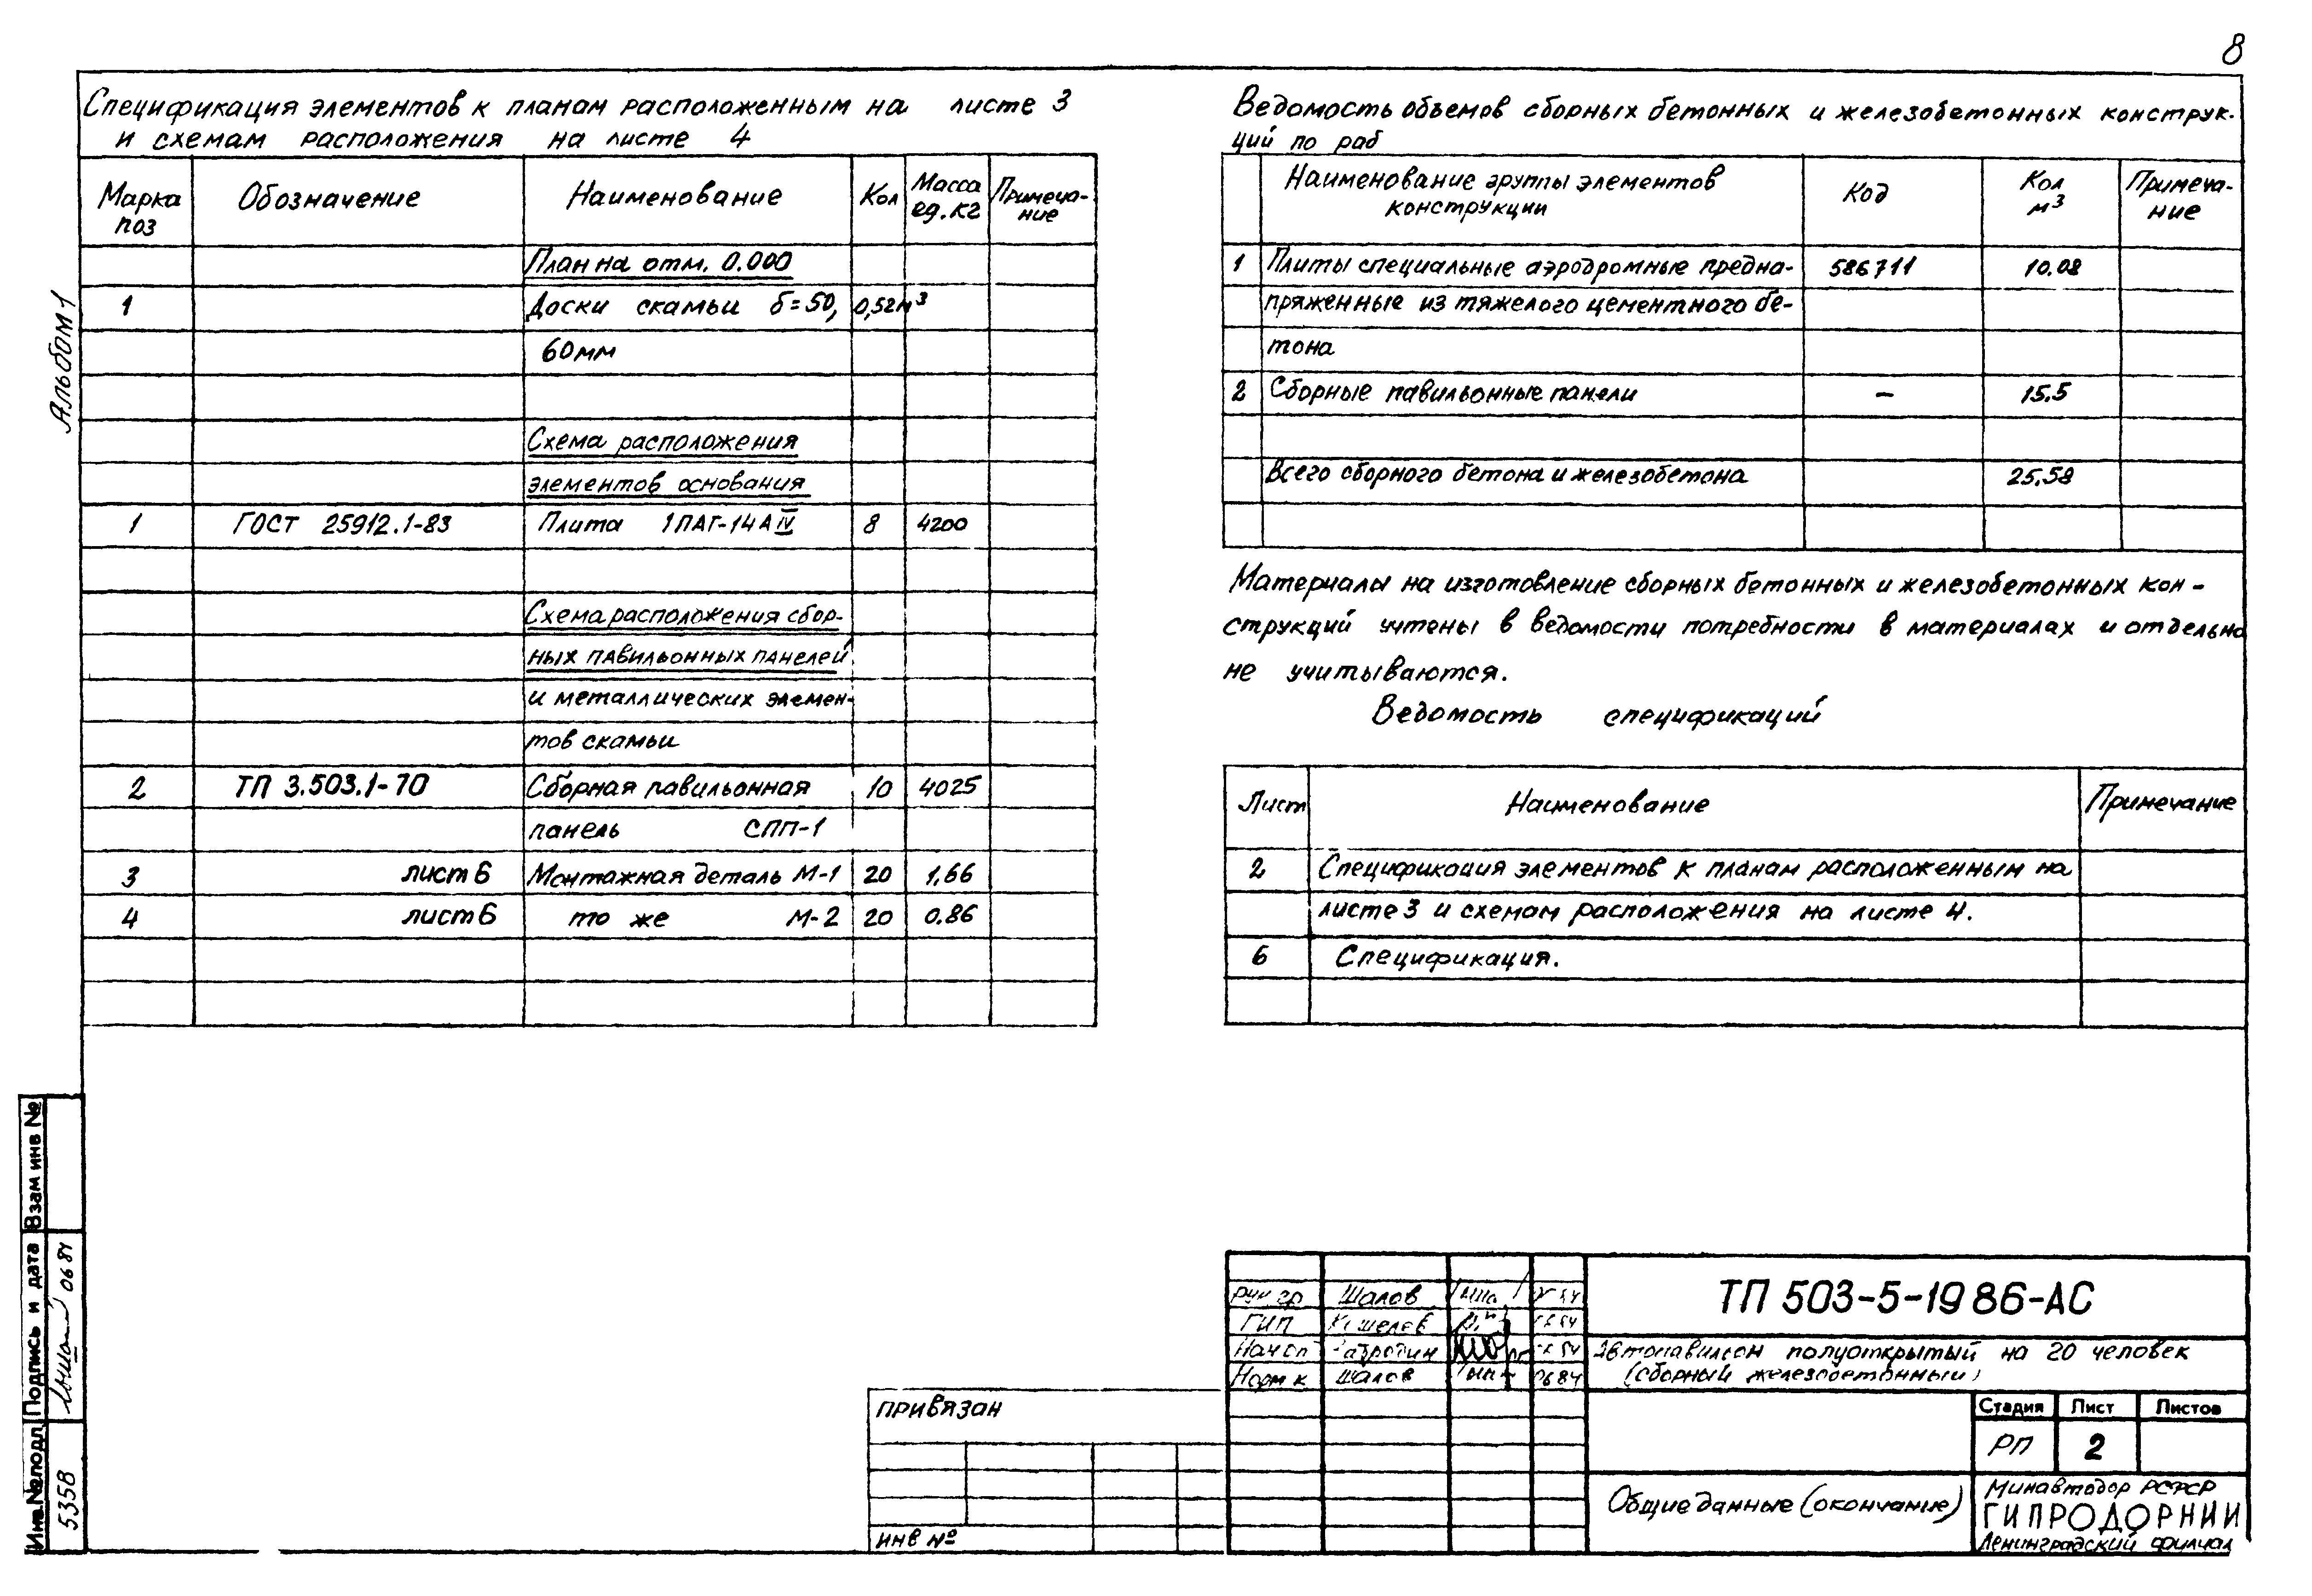 8
Альбом 1
Спецификация элементов к планам расположенным на листе 3
и схемам расположения на листе 4
Марка поз Обозначение Наименование Кол Масса ед. кг Примеча-ние
План на отм. 0.000
1 Доски скамьи б=50, 0,52м³
60мм
Схема расположения
элементов основания
1 ГОСТ 25912.1-83 Плита 1ПАГ-14АIV 8 4200
Схема расположения сбор-
ных павильонных панелей
и металлических элемен-
тов скамьи
2 ТП 3.503.1-70 Сборная павильонная 10 4025
панель СПП-1
3 лист 6 Монтажная деталь М-1 20 1,66
4 лист 6 то же М-2 20 0.86
Ведомость объемов сборных бетонных и железобетонных конструк-
ций по раб
Наименование группы элементов конструкции Код Кол м³ Примеча-ние
1 Плиты специальные аэродромные предна- 586711 10.08
пряженные из тяжелого цементного бе-
тона
2 Сборные павильонные панели – 15.5
Всего сборного бетона и железобетона 25.58
Материалы на изготовление сборных бетонных и железобетонных кон-
струкций учтены в ведомости потребности в материалах и отдельно
не учитываются.
Ведомость спецификаций
Лист Наименование Примечание
2 Спецификация элементов к планам расположенным на
листе 3 и схемам расположения на листе 4.
6 Спецификация.
Взам инв №
Подпись и дата 0684
Инв. № подл. 5358
привязан
инв №
Рук гр Шалов
ГИП
Нач оп
Норм к Шалов 0684
ТП 503-5-1986-АС
Автопавильон полуоткрытый на 20 человек
(сборный железобетонный)
Стадия Лист Листов
РП 2
Общие данные (окончание)
Минавтодор РСФСР
ГИПРОДОРНИИ
Ленинградский филиал